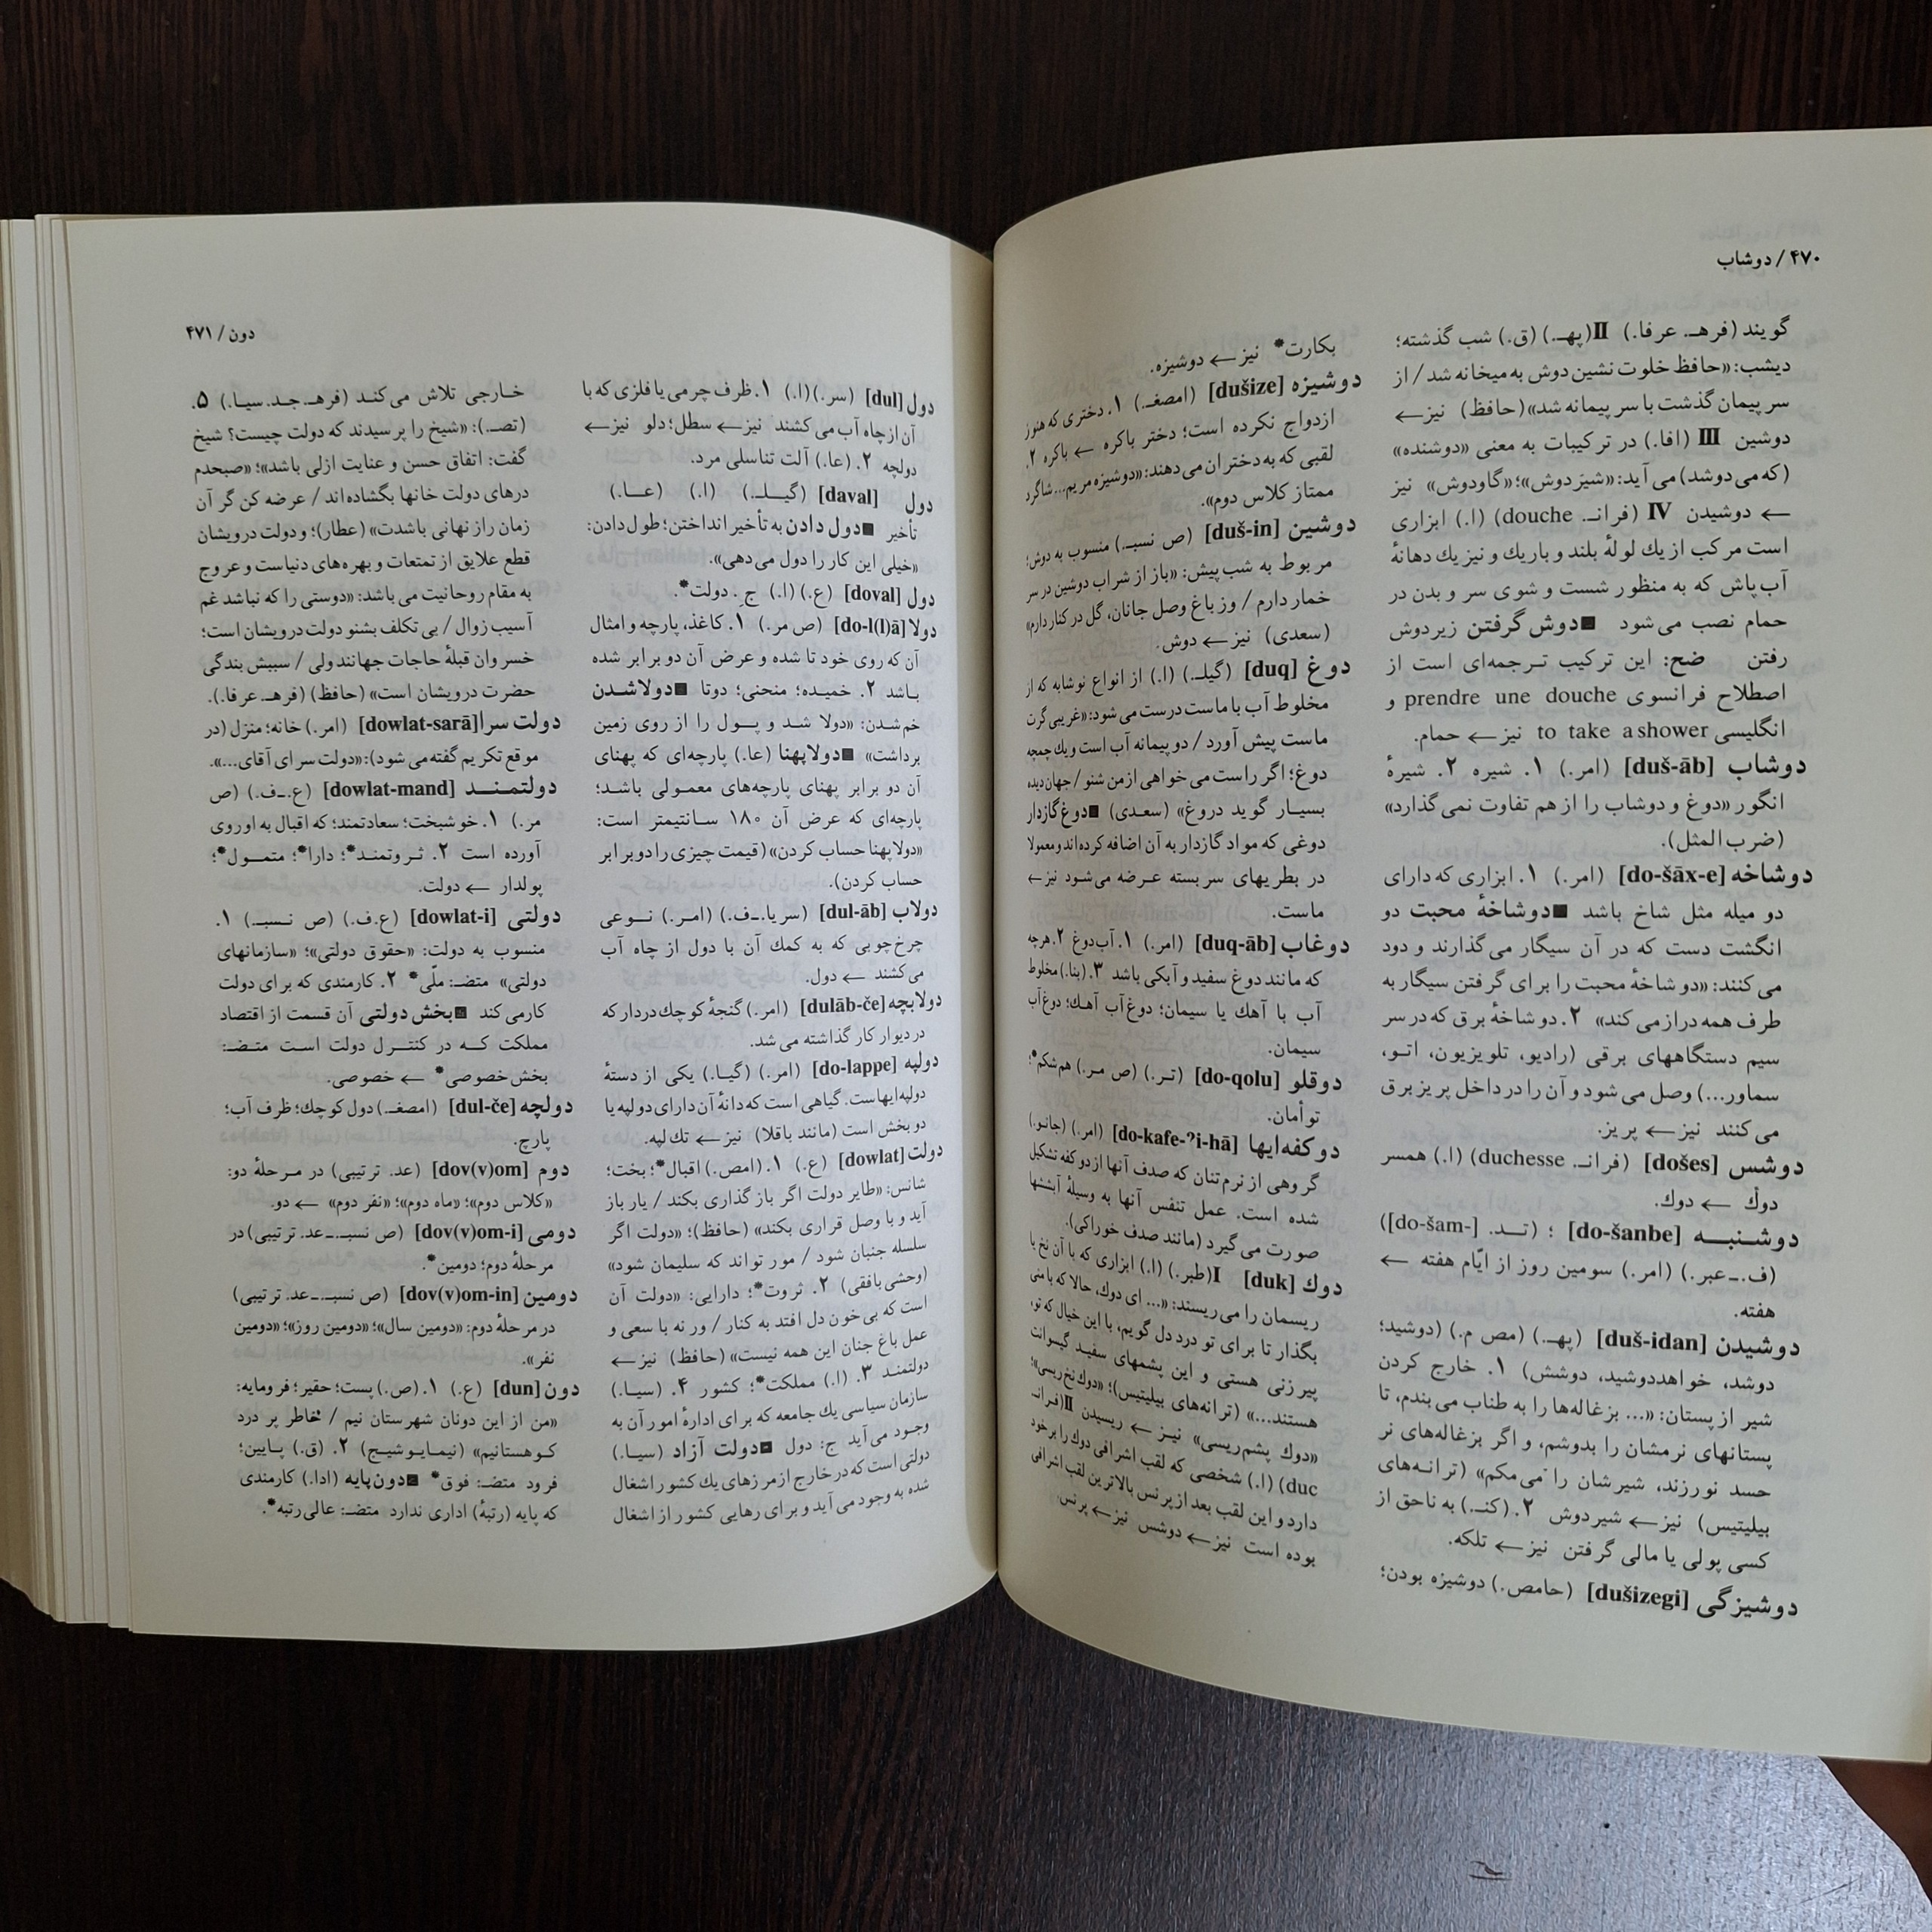 ۴۷۰ / دوشاب
گویند (فرهـ. عرفا.) II (پهـ.) (ق.) شب گذشته؛
دیشب: «حافظ خلوت نشین دوش به میخانه شد / از
سر پیمان گذشت با سر پیمانه شد» (حافظ) نیز ←
دوشین III (افا.) در ترکیبات به معنی «دوشنده»
(که می‌دوشد) می‌آید: «شیردوش»؛ «گاودوش» نیز
← دوشیدن IV (فرانـ. douche) (ا.) ابزاری
است مرکب از یك لولهٔ بلند و باریك و نیز یك دهانهٔ
آب‌پاش که به منظور شست و شوی سر و بدن در
حمام نصب می‌شود ■دوش گرفتن زیر دوش
رفتن ضح: این ترکیب ترجمه‌ای است از
اصطلاح فرانسوی prendre une douche و
انگلیسی to take a shower نیز ← حمام.
دوشاب [duš-āb] (امر.) ۱. شیره ۲. شیرهٔ
انگور «دوغ و دوشاب را از هم تفاوت نمی‌گذارد»
(ضرب المثل).
دوشاخه [do-šāx-e] (امر.) ۱. ابزاری که دارای
دو میله مثل شاخ باشد ■دوشاخهٔ محبت دو
انگشت دست که در آن سیگار می‌گذارند و دود
می‌کنند: «دو شاخهٔ محبت را برای گرفتن سیگار به
طرف همه دراز می‌کند» ۲. دو شاخهٔ برق که در سر
سیم دستگاههای برقی (رادیو، تلویزیون، اتو،
سماور...) وصل می‌شود و آن را در داخل پریز برق
می‌کنند نیز ← پریز.
دوشس [došes] (فرانـ. duchesse) (ا.) همسر
دوك ← دوك.
دوشنبه [do-šanbe] ؛ (تد. [do-šam-])
(ف.ـ‌عبر.) (امر.) سومین روز از ایّام هفته ←
هفته.
دوشیدن [duš-idan] (پهـ.) (مص م.) (دوشید؛
دوشد، خواهد‌دوشید، دوشش) ۱. خارج کردن
شیر از پستان: «... بزغاله‌ها را به طناب می‌بندم، تا
پستانهای نرمشان را بدوشم، و اگر بزغاله‌های نر
حسد نورزند، شیرشان را می‌مکم» (ترانه‌های
بیلیتیس) نیز ← شیر دوش ۲. (کنـ.) به ناحق از
کسی پولی یا مالی گرفتن نیز ← تلکه.
دوشیزگی [dušizegi] (حامص.) دوشیزه بودن؛
بکارت* نیز ← دوشیزه.
دوشیزه [dušize] (امصغـ.) ۱. دختری که هنوز
ازدواج نکرده است؛ دختر باکره ← باکره ۲.
لقبی که به دختران می‌دهند: «دوشیزه مریم... شاگرد
ممتاز کلاس دوم».
دوشین [duš-in] (ص نسبـ.) منسوب به دوش؛
مربوط به شب پیش: «باز از شراب دوشین در سر
خمار دارم / وز باغ وصل جانان، گل در کنار دارم»
(سعدی) نیز ← دوش.
دوغ [duq] (گیلـ.) (ا.) از انواع نوشابه که از
مخلوط آب با ماست درست می‌شود: «غریبی گرت
ماست پیش آورد / دو پیمانه آب است و یك چمچه
دوغ؛ اگر راست می‌خواهی از من شنو / جهان‌دیده
بسیار گوید دروغ» (سعدی) ■دوغ گازدار
دوغی که مواد گازدار به آن اضافه کرده‌اند و معمولا
در بطریهای سر بسته عرضه می‌شود نیز ←
ماست.
دوغاب [duq-āb] (امر.) ۱. آب‌دوغ ۲. هرچه
که مانند دوغ سفید و آبکی باشد ۳. (بنا.) مخلوط
آب با آهك یا سیمان؛ دوغ‌آب آهك؛ دوغ‌آب
سیمان.
دوقلو [do-qolu] (تر.) (ص مر.) هم شکم*؛
توأمان.
دوکفه‌ایها [do-kafe-ʔi-hā] (امر.) (جانو.)
گروهی از نرم‌تنان که صدف آنها از دو کفه تشکیل
شده است. عمل تنفس آنها به وسیلهٔ آبششها
صورت می‌گیرد (مانند صدف خوراکی).
دوك [duk] I (طبر.) (ا.) ابزاری که با آن نخ یا
ریسمان را می‌ریسند: «... ای دوك، حالا که با منی
بگذار تا برای تو درد دل گویم، با این خیال که تو،
پیرزنی هستی و این پشمهای سفید گیسوانت
هستند...» (ترانه‌های بیلیتیس)؛ «دوك نخ‌ریسی»؛
«دوك پشم‌ریسی» نیز ← ریسیدن II (فرانـ.
duc) (ا.) شخصی که لقب اشرافی دوك را بر خود
دارد و این لقب بعد از پرنس بالاترین لقب اشرافی
بوده است نیز ← دوشس نیز ← پرنس
دون / ۴۷۱
دول [dul] (سر.) (ا.) ۱. ظرف چرمی یا فلزی که با
آن از چاه آب می‌کشند نیز ← سطل؛ دلو نیز ←
دولچه ۲. (عا.) آلت تناسلی مرد.
دول [daval] (گیلـ.) (ا.) (عا.)
تأخیر ■دول دادن به تأخیر انداختن؛ طول دادن:
«خیلی این کار را دول می‌دهی».
دول [doval] (ع.) (ا.) جِ. دولت*.
دولا [do-l(l)ā] (ص مر.) ۱. کاغذ، پارچه و امثال
آن که روی خود تا شده و عرض آن دو برابر شده
باشد ۲. خمیده؛ منحنی؛ دوتا ■دولاشدن
خم شدن: «دولا شد و پول را از روی زمین
برداشت» ■دولاپهنا (عا.) پارچه‌ای که پهنای
آن دو برابر پهنای پارچه‌های معمولی باشد؛
پارچه‌ای که عرض آن ۱۸۰ سانتیمتر است:
«دولا پهنا حساب کردن» (قیمت چیزی را دو برابر
حساب کردن).
دولاب [dul-āb] (سریا.ـ‌ف.) (امر.) نوعی
چرخ‌چوبی که به کمك آن با دول از چاه آب
می‌کشند ← دول.
دولابچه [dulāb-če] (امر.) گنجهٔ کوچك دردار که
در دیوار کار گذاشته می‌شد.
دولپه [do-lappe] (امر.) (گیا.) یکی از دستهٔ
دولپه‌ایهاست. گیاهی است که دانهٔ آن دارای دولپه یا
دو بخش است (مانند باقلا) نیز ← تك لپه.
دولت [dowlat] (ع.) ۱. (امص.) اقبال*؛ بخت؛
شانس: «طایر دولت اگر باز گذاری بکند / یار باز
آید و با وصل قراری بکند» (حافظ)؛ «دولت اگر
سلسله جنبان شود / مور تواند که سلیمان شود»
(وحشی بافقی) ۲. ثروت*؛ دارایی: «دولت آن
است که بی‌خون دل افتد به کنار / ورنه با سعی و
عمل باغ جنان این همه نیست» (حافظ) نیز ←
دولتمند ۳. (ا.) مملکت*؛ کشور ۴. (سیا.)
سازمان سیاسی یك جامعه که برای ادارهٔ امور آن به
وجود می‌آید ج: دول ■دولت آزاد (سیا.)
دولتی است که در خارج از مرزهای یك کشور اشغال
شده به وجود می‌آید و برای رهایی کشور از اشغال
خارجی تلاش می‌کند (فرهـ. جـد. سیا.) ۵.
(تصـ.): «شیخ را پرسیدند که دولت چیست؟ شیخ
گفت: اتفاق حسن و عنایت ازلی باشد»؛ «صبحدم
درهای دولت خانها بگشاده‌اند / عرضه کن گر آن
زمان راز نهانی باشدت» (عطار)؛ و دولت درویشان
قطع علایق از تمتعات و بهره‌های دنیاست و عروج
به مقام روحانیت می‌باشد: «دوستی را که نباشد غم
آسیب زوال / بی تکلف بشنو دولت درویشان است؛
خسروان قبلهٔ حاجات جهانند ولی / سببش بندگی
حضرت درویشان است» (حافظ) (فرهـ. عرفا.).
دولت سرا [dowlat-sarā] (امر.) خانه؛ منزل (در
موقع تکریم گفته می‌شود): «دولت سرای آقای...».
دولتمند [dowlat-mand] (ع.ـ‌ف.) (ص
مر.) ۱. خوشبخت؛ سعادتمند؛ که اقبال به او روی
آورده است ۲. ثروتمند*؛ دارا*؛ متمول*؛
پولدار ← دولت.
دولتی [dowlat-i] (ع.ف.) (ص نسبـ.) ۱.
منسوب به دولت: «حقوق دولتی»؛ «سازمانهای
دولتی» متضـ: ملّی* ۲. کارمندی که برای دولت
کار می‌کند ■بخش دولتی آن قسمت از اقتصاد
مملکت که در کنترل دولت است متضـ:
بخش خصوصی* ← خصوصی.
دولچه [dul-če] (امصغـ.) دول کوچك؛ ظرف آب؛
پارچ.
دوم [dov(v)om] (عد. ترتیبی) در مرحلهٔ دو:
«کلاس دوم»؛ «ماه دوم»؛ «نفر دوم» ← دو.
دومی [dov(v)om-i] (ص نسبـ.ـ‌عد. ترتیبی) در
مرحلهٔ دوم؛ دومین*.
دومین [dov(v)om-in] (ص نسبـ.ـ‌عد. ترتیبی)
در مرحلهٔ دوم: «دومین سال»؛ «دومین روز»؛ «دومین
نفر».
دون [dun] (ع.) ۱. (ص.) پست؛ حقیر؛ فرومایه:
«من از این دونان شهرستان نیم / خاطر پر درد
کوهستانیم» (نیمایوشیج) ۲. (ق.) پایین؛
فرود متضـ: فوق* ■دون‌پایه (ادا.) کارمندی
که پایه (رتبهٔ) اداری ندارد متضـ: عالی رتبه*.